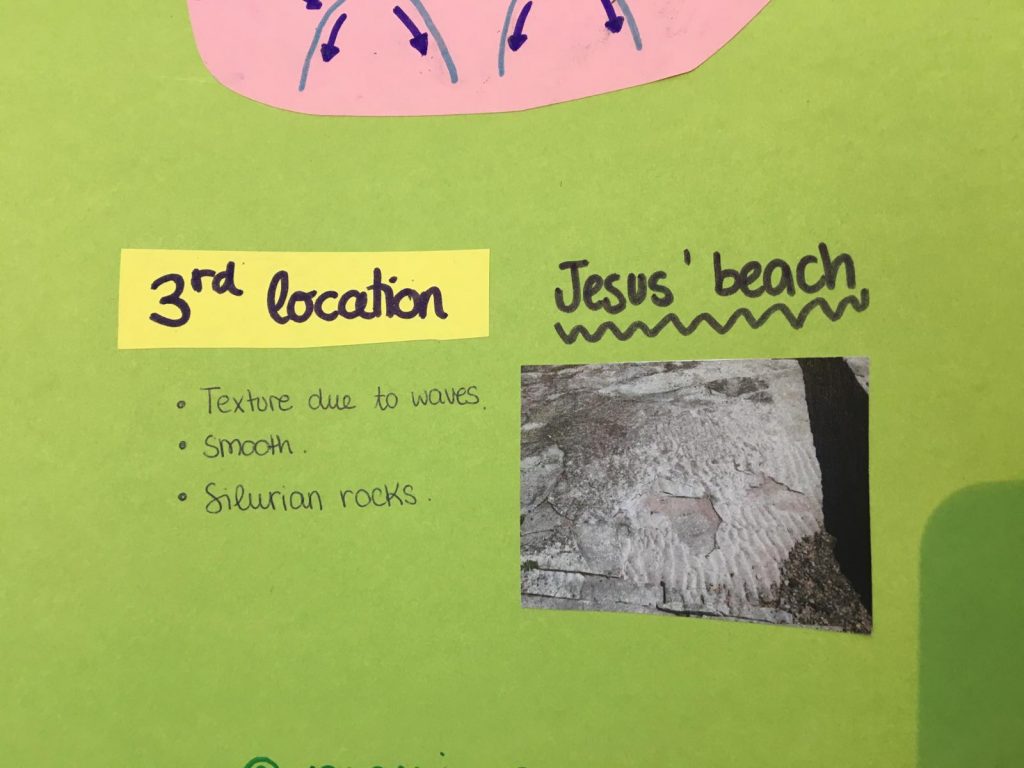 3rd location
Jesus' beach
• Texture due to waves.
• Smooth.
• Silurian rocks.